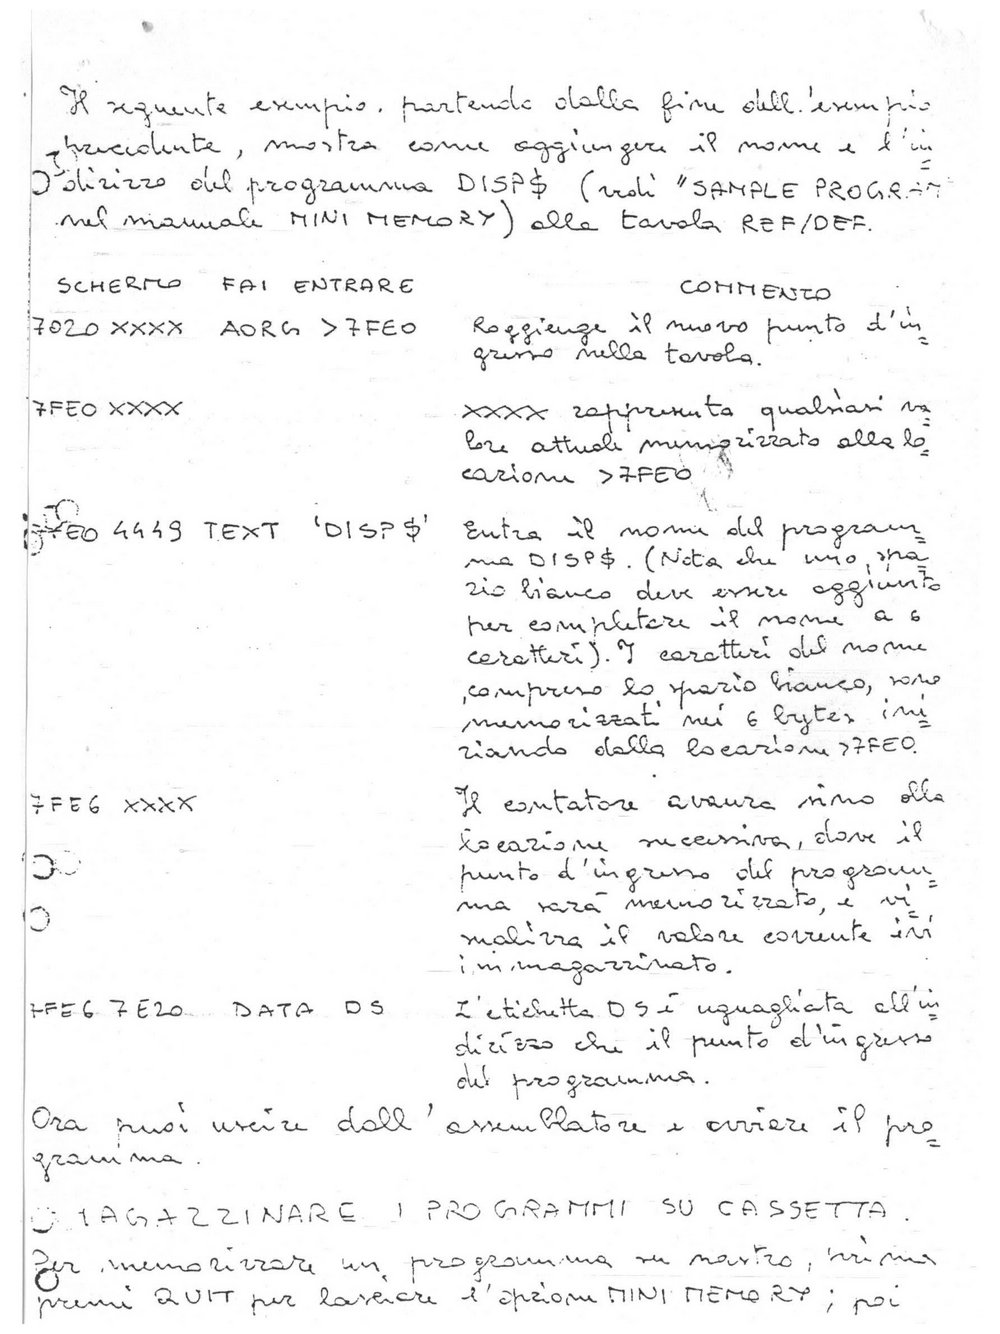 Il seguente esempio, partendo dalla fine dell'esempio
precedente, mostra come aggiungere il nome e l'in=
dirizzo del programma DISP$ (vedi "SAMPLE PROGRAM
nel manuale MINI MEMORY) alla tavola REF/DEF.
SCHERMO FAI ENTRARE COMMENTO
7020 XXXX AORG >7FE0 Raggiunge il nuovo punto d'in=
gresso nella tavola.
7FE0 XXXX XXXX rappresenta qualsiasi va=
lore attuale memorizzato alla lo=
cazione >7FE0
7FE0 4449 TEXT 'DISP$' Entra il nome del program=
ma DISP$. (Nota che uno spa=
zio bianco deve essere aggiunto
per completare il nome a 6
caratteri). I caratteri del nome
,compreso lo spazio bianco, sono
memorizzati nei 6 bytes ini=
ziando dalla locazione >7FE0.
7FE6 XXXX Il contatore avanza sino alla
locazione successiva, dove il
punto d'ingresso del program=
ma sarà memorizzato, e vi=
malizza il valore corrente ivi
immagazzinato.
7FE6 7E20 DATA DS L'etichetta DS è uguagliata all'in=
dirizzo che il punto d'ingresso
del programma.
Ora puoi uscire dall'assemblatore e avviare il pro=
gramma.
MAGAZZINARE I PROGRAMMI SU CASSETTA.
Per memorizzare un programma su nastro, prima
premi QUIT per lasciare l'opzione MINI MEMORY; poi